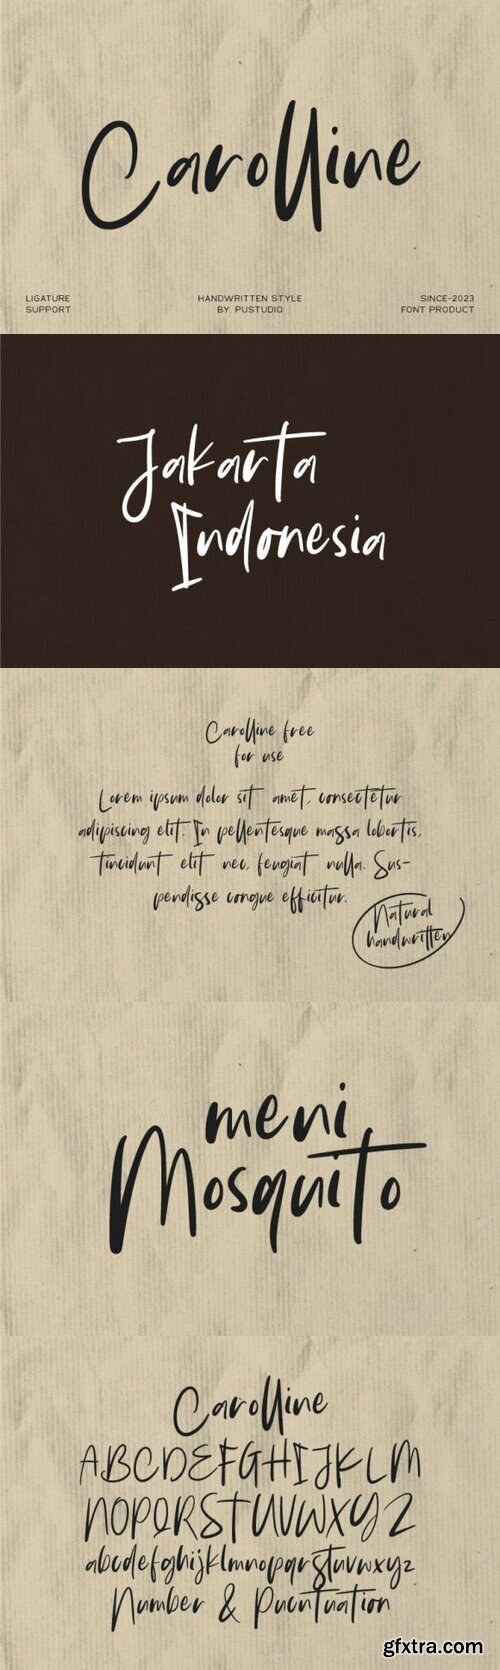 Carolline
LIGATURE
SUPPORT
HANDWRITTEN STYLE
BY. PUSTUDIO
SINCE-2023
FONT PRODUCT
Jakarta
Indonesia
Carolline free
for use
Lorem ipsum dolor sit amet, consectetur
adipiscing elit. In pellentesque massa lobortis,
tincidunt elit nec, feugiat nulla. Sus-
pendisse congue efficitur.
Natural
handwritten
meni
Mosquito
Carolline
ABCDEFGHIJKLM
NOPQRSTUVWXYZ
abcdefghijklmnopqrstuvwxyz
Number & Pucntuation
gfxtra.com